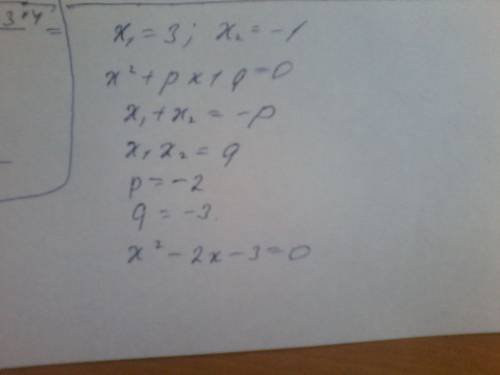 3*4 =
x₁ = 3; x₂ = -1
x² + px + q = 0
x₁ + x₂ = -p
x₁ x₂ = q
p = -2
q = -3.
x² - 2x - 3 = 0